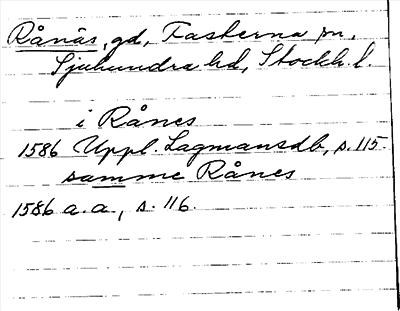 Rånäs, gd, Fasterna sn,
Sjuhundra hd, Stockh. l.
i Rånes
1586 Uppl. Lagmansdb, s. 115.
samme Rånes
1586 a.a., s. 116.